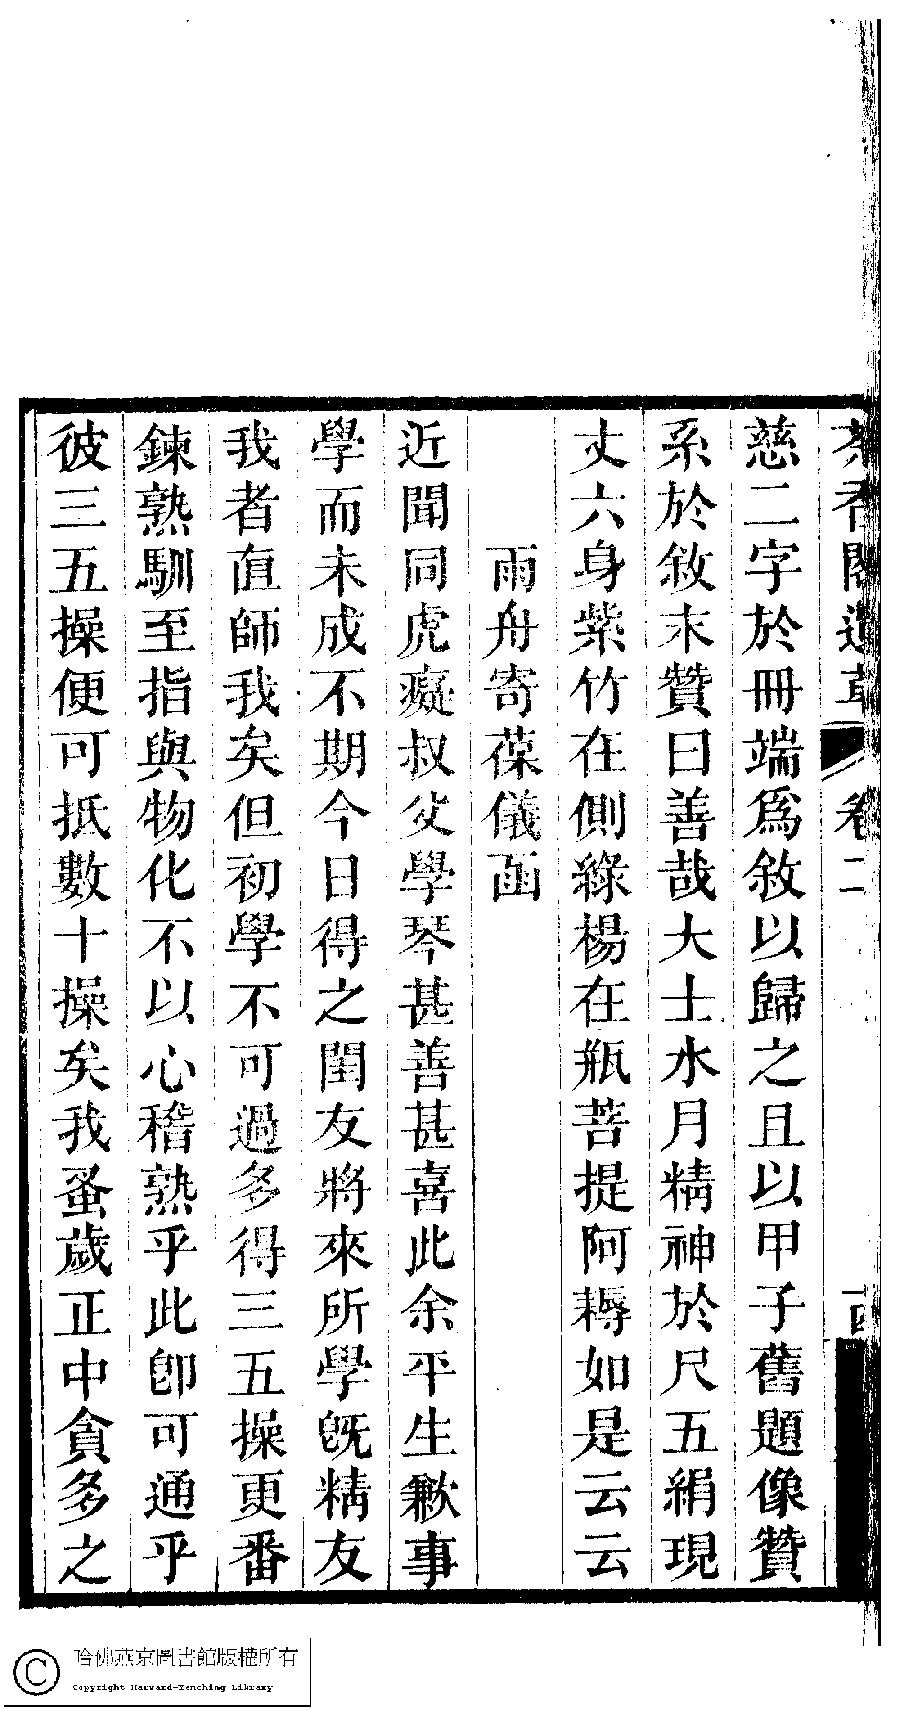 茶香閣遺草 卷二 十四
慈二字於冊端為敘以歸之且以甲子舊題像贊
系於敘末贊曰善哉大士水月精神於尺五絹現
丈六身紫竹在側綠楊在瓶菩提阿耨如是云云
雨舟寄葆儀函
近聞同虎癡叔父學琴甚善甚喜此余平生歉事
學而未成不期今日得之閨友將來所學旣精友
我者直師我矣但初學不可過多得三五操更番
鍊熟馴至指與物化不以心稽熟乎此卽可通乎
彼三五操便可抵數十操矣我蚤歲正中貪多之
哈佛燕京圖書館版權所有
Copyright Harvard-Yenching Library